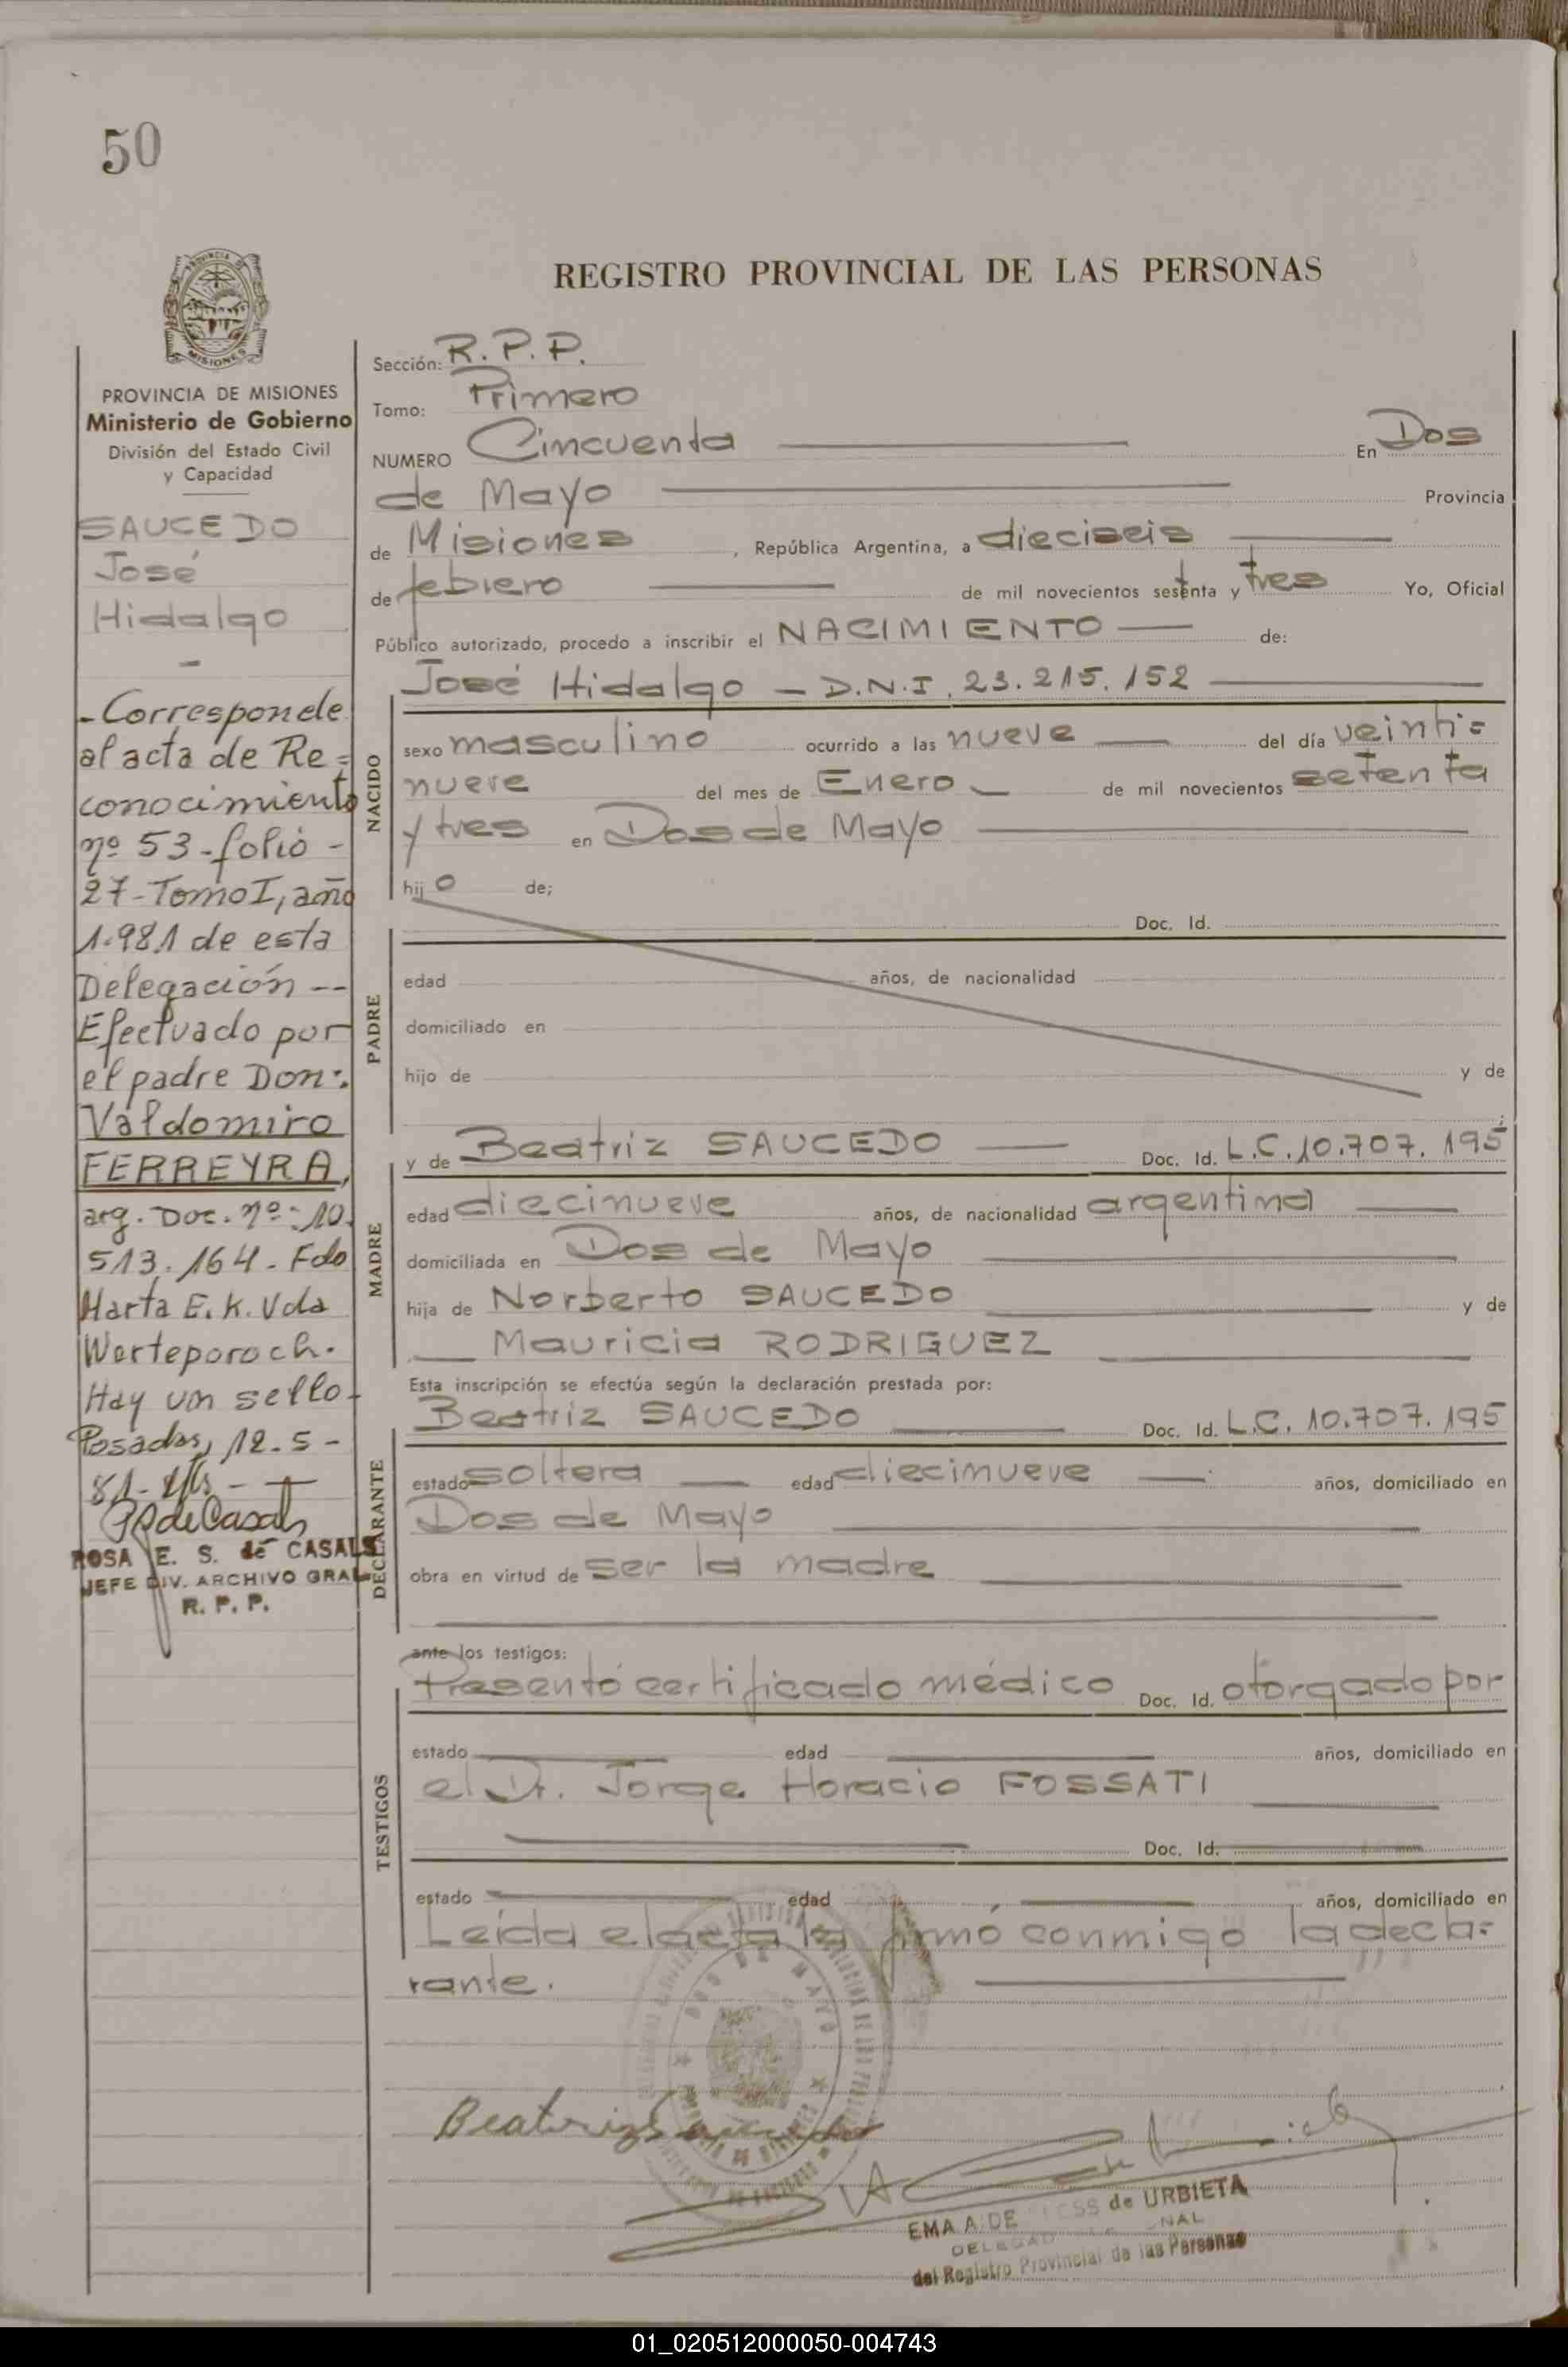 50
REGISTRO PROVINCIAL DE LAS PERSONAS
PROVINCIA DE MISIONES
Ministerio de Gobierno
División del Estado Civil
y Capacidad
SAUCEDO
José
Hidalgo
-
- Corresponde
al acta de Re=
conocimiento
nº 53 - folio -
27 - Tomo I, año
1.981 de esta
Delegación --
Efectuado por
el padre Don:
Valdomiro
FERREYRA,
arg. Doc. nº: 10.
513.164 - Fdo
Marta E. K. Vda
Werteporoch.
Hay un sello -
Posadas, 12-5-
81-
ROSA E. S. de CASALS
JEFE DIV. ARCHIVO GRAL
R. P. P.
Sección: R. P. P.
Tomo: Primero
NUMERO Cincuenta En Dos
de Mayo Provincia
de Misiones, República Argentina, a dieciseis
de febrero de mil novecientos setenta y tres Yo, Oficial
Público autorizado, procedo a inscribir el NACIMIENTO de:
José Hidalgo - D.N.I. 23.215.152
NACIDO
sexo masculino ocurrido a las nueve del día veinti=
nueve del mes de Enero de mil novecientos setenta
y tres en Dos de Mayo
hijo de;
PADRE
Doc. Id.
edad años, de nacionalidad
domiciliado en
hijo de y de
MADRE
y de Beatriz SAUCEDO Doc. Id. L.C. 10.707.195
edad diecinueve años, de nacionalidad argentina
domiciliada en Dos de Mayo
hija de Norberto SAUCEDO y de
Mauricia RODRIGUEZ
Esta inscripción se efectúa según la declaración prestada por:
DECLARANTE
Beatriz SAUCEDO Doc. Id. L.C. 10.707.195
estado soltera edad diecinueve años, domiciliado en
Dos de Mayo
obra en virtud de ser la madre
ante los testigos:
TESTIGOS
Presentó certificado médico Doc. Id. otorgado por
estado edad años, domiciliado en
el Dr. Jorge Horacio FOSSATI
Doc. Id.
estado edad años, domiciliado en
Leída el acta la firmó conmigo la decla=
rante.
DOS DE MAYO
Beatriz Saucedo
EMA A. DE de URBIETA
del Registro Provincial de las Personas
01_020512000050-004743